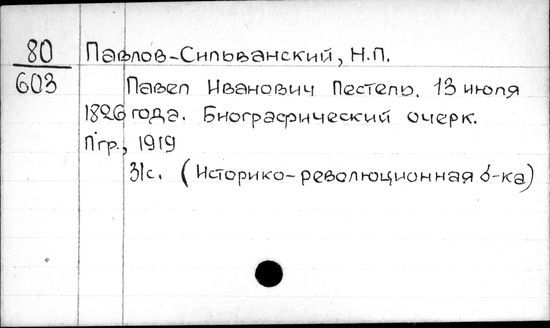 80
603
Павлов-Сильванский, Н.П.
Павел Иванович Пестель. 13 июля
1826 года. Биографический очерк.
Пгр., 1919
31с. (Историко-революционная б-ка)